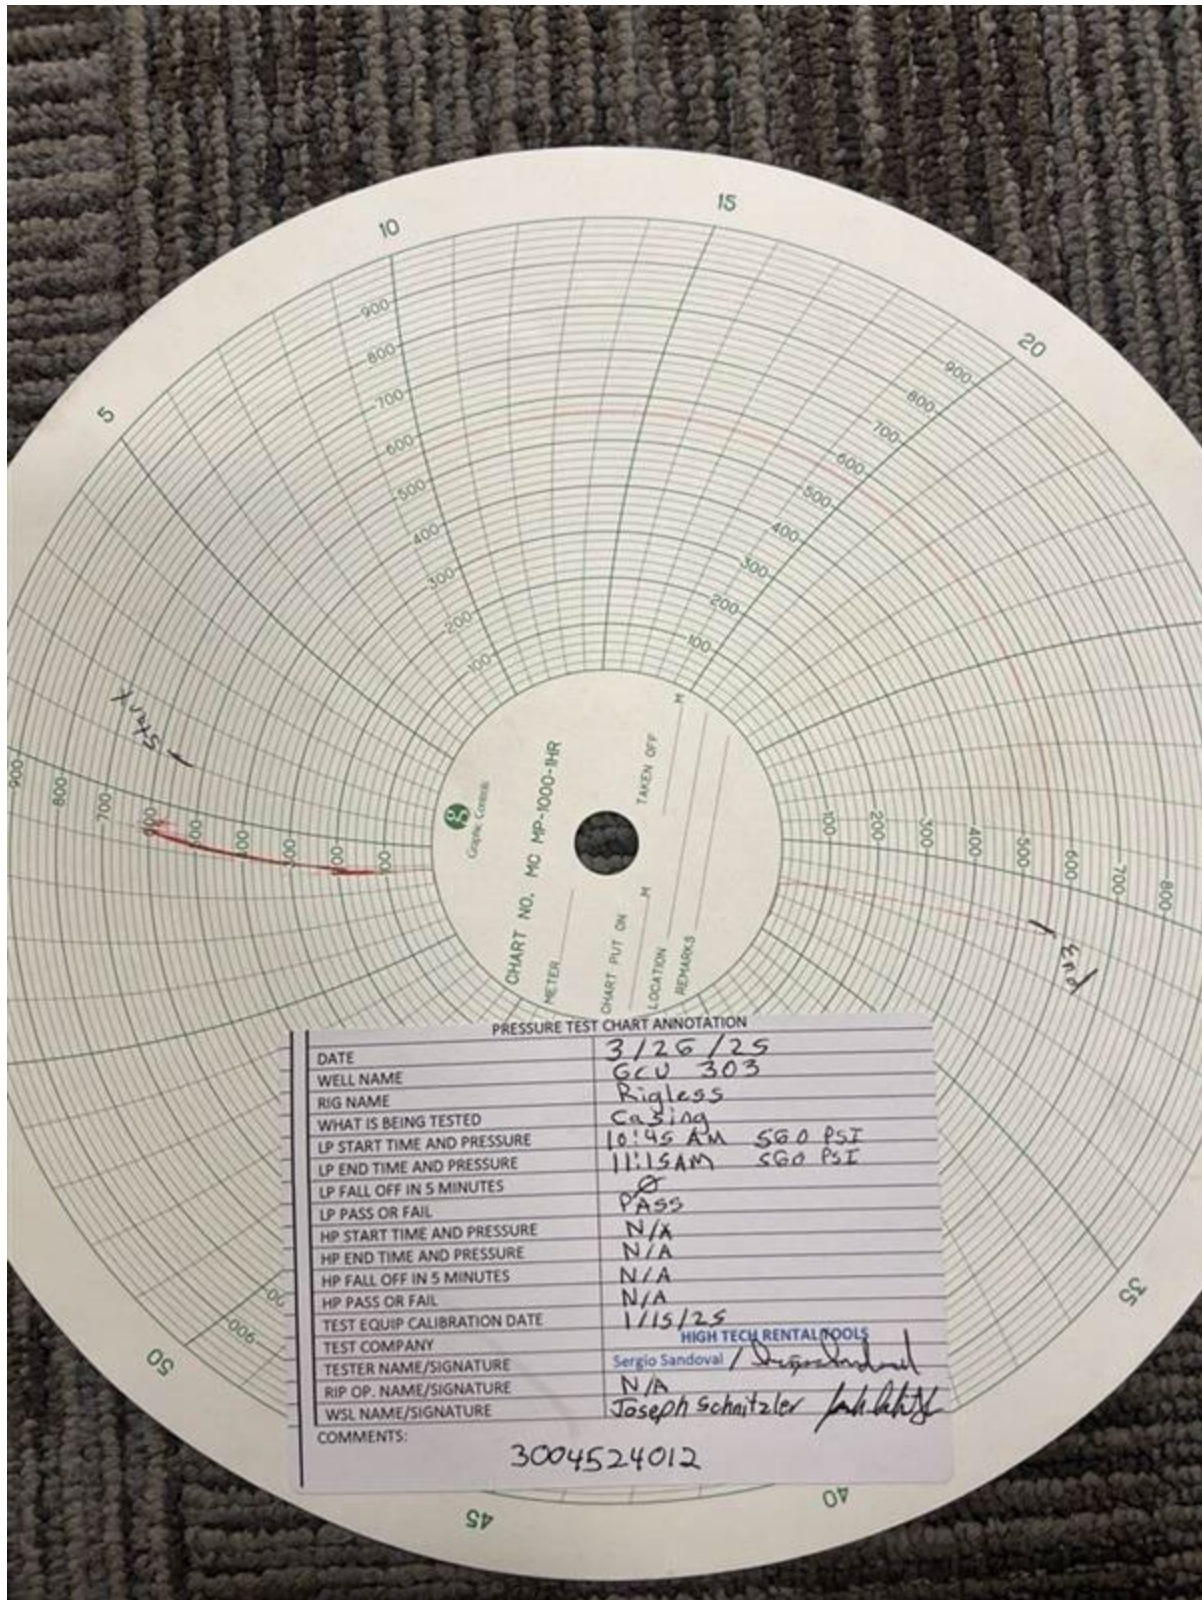 15
10
20
5
900
800
700
600
500
400
300
200
100
900
800
700
600
500
400
300
200
100
Start
900
800
700
100
200
300
400
500
600
700
800
End
Graphic Controls
CHART NO. MC MP-1000-1HR
METER
CHART PUT ON M
TAKEN OFF M
LOCATION
REMARKS
PRESSURE TEST CHART ANNOTATION
DATE 3/26/25
WELL NAME GCU 303
RIG NAME Rigless
WHAT IS BEING TESTED Casing
LP START TIME AND PRESSURE 10:45 AM 560 PSI
LP END TIME AND PRESSURE 11:15AM 560 PSI
LP FALL OFF IN 5 MINUTES Ø
LP PASS OR FAIL PASS
HP START TIME AND PRESSURE N/A
HP END TIME AND PRESSURE N/A
HP FALL OFF IN 5 MINUTES N/A
HP PASS OR FAIL N/A
TEST EQUIP CALIBRATION DATE 1/15/25
TEST COMPANY HIGH TECH RENTAL TOOLS
TESTER NAME/SIGNATURE Sergio Sandoval /
RIP OP. NAME/SIGNATURE N/A
WSL NAME/SIGNATURE Joseph Schnitzler
COMMENTS:
3004524012
900
50
35
45
40